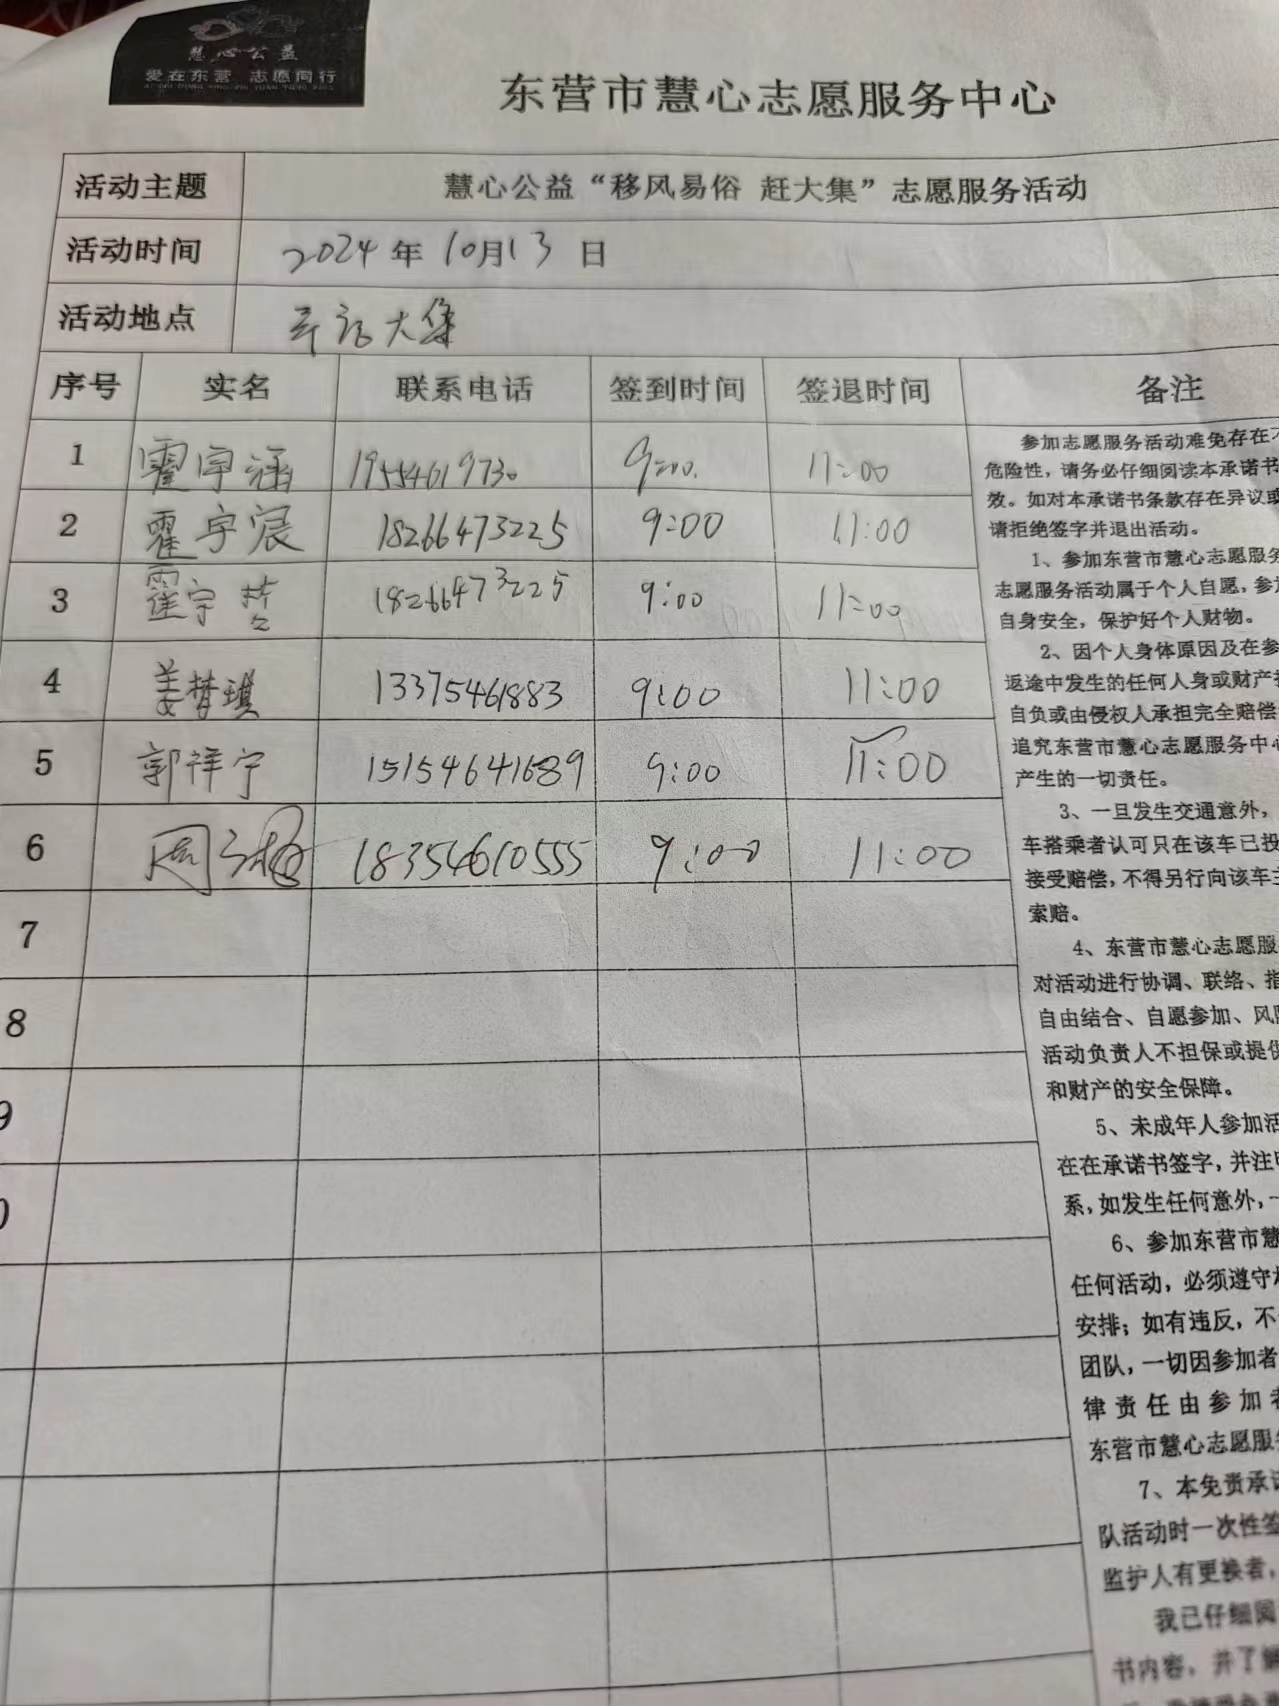 慧心公益
爱在东营 志愿同行
东营市慧心志愿服务中心
活动主题 慧心公益“移风易俗 赶大集”志愿服务活动
活动时间 2024年10月13日
活动地点 大集
序号 实名 联系电话 签到时间 签退时间 备注
1 霍宇涵 19554619730 9:00. 11:00
2 霍宇宸 18266473225 9:00 11:00
3 霍宇哲 18266473225 9:00 11:00
4 姜梦琪 13375461883 9:00 11:00
5 郭祥宁 15154641689 9:00 11:00
6 周 18354610555 9:00 11:00
7
8
9
0
参加志愿服务活动难免存在不
危险性，请务必仔细阅读本承诺书
效。如对本承诺书条款存在异议或
请拒绝签字并退出活动。
1、参加东营市慧心志愿服务
志愿服务活动属于个人自愿，参加
自身安全，保护好个人财物。
2、因个人身体原因及在参
返途中发生的任何人身或财产损
自负或由侵权人承担完全赔偿
追究东营市慧心志愿服务中心
产生的一切责任。
3、一旦发生交通意外，
车搭乘者认可只在该车已投
接受赔偿，不得另行向该车主
索赔。
4、东营市慧心志愿服
对活动进行协调、联络、指
自由结合、自愿参加、风险
活动负责人不担保或提供
和财产的安全保障。
5、未成年人参加活
在在承诺书签字，并注明
系，如发生任何意外，一
6、参加东营市慧
任何活动，必须遵守
安排；如有违反，不
团队，一切因参加者
律责任由参加者
东营市慧心志愿服
7、本免责承诺
队活动时一次性签
监护人有更换者，
我已仔细阅
书内容，并了解